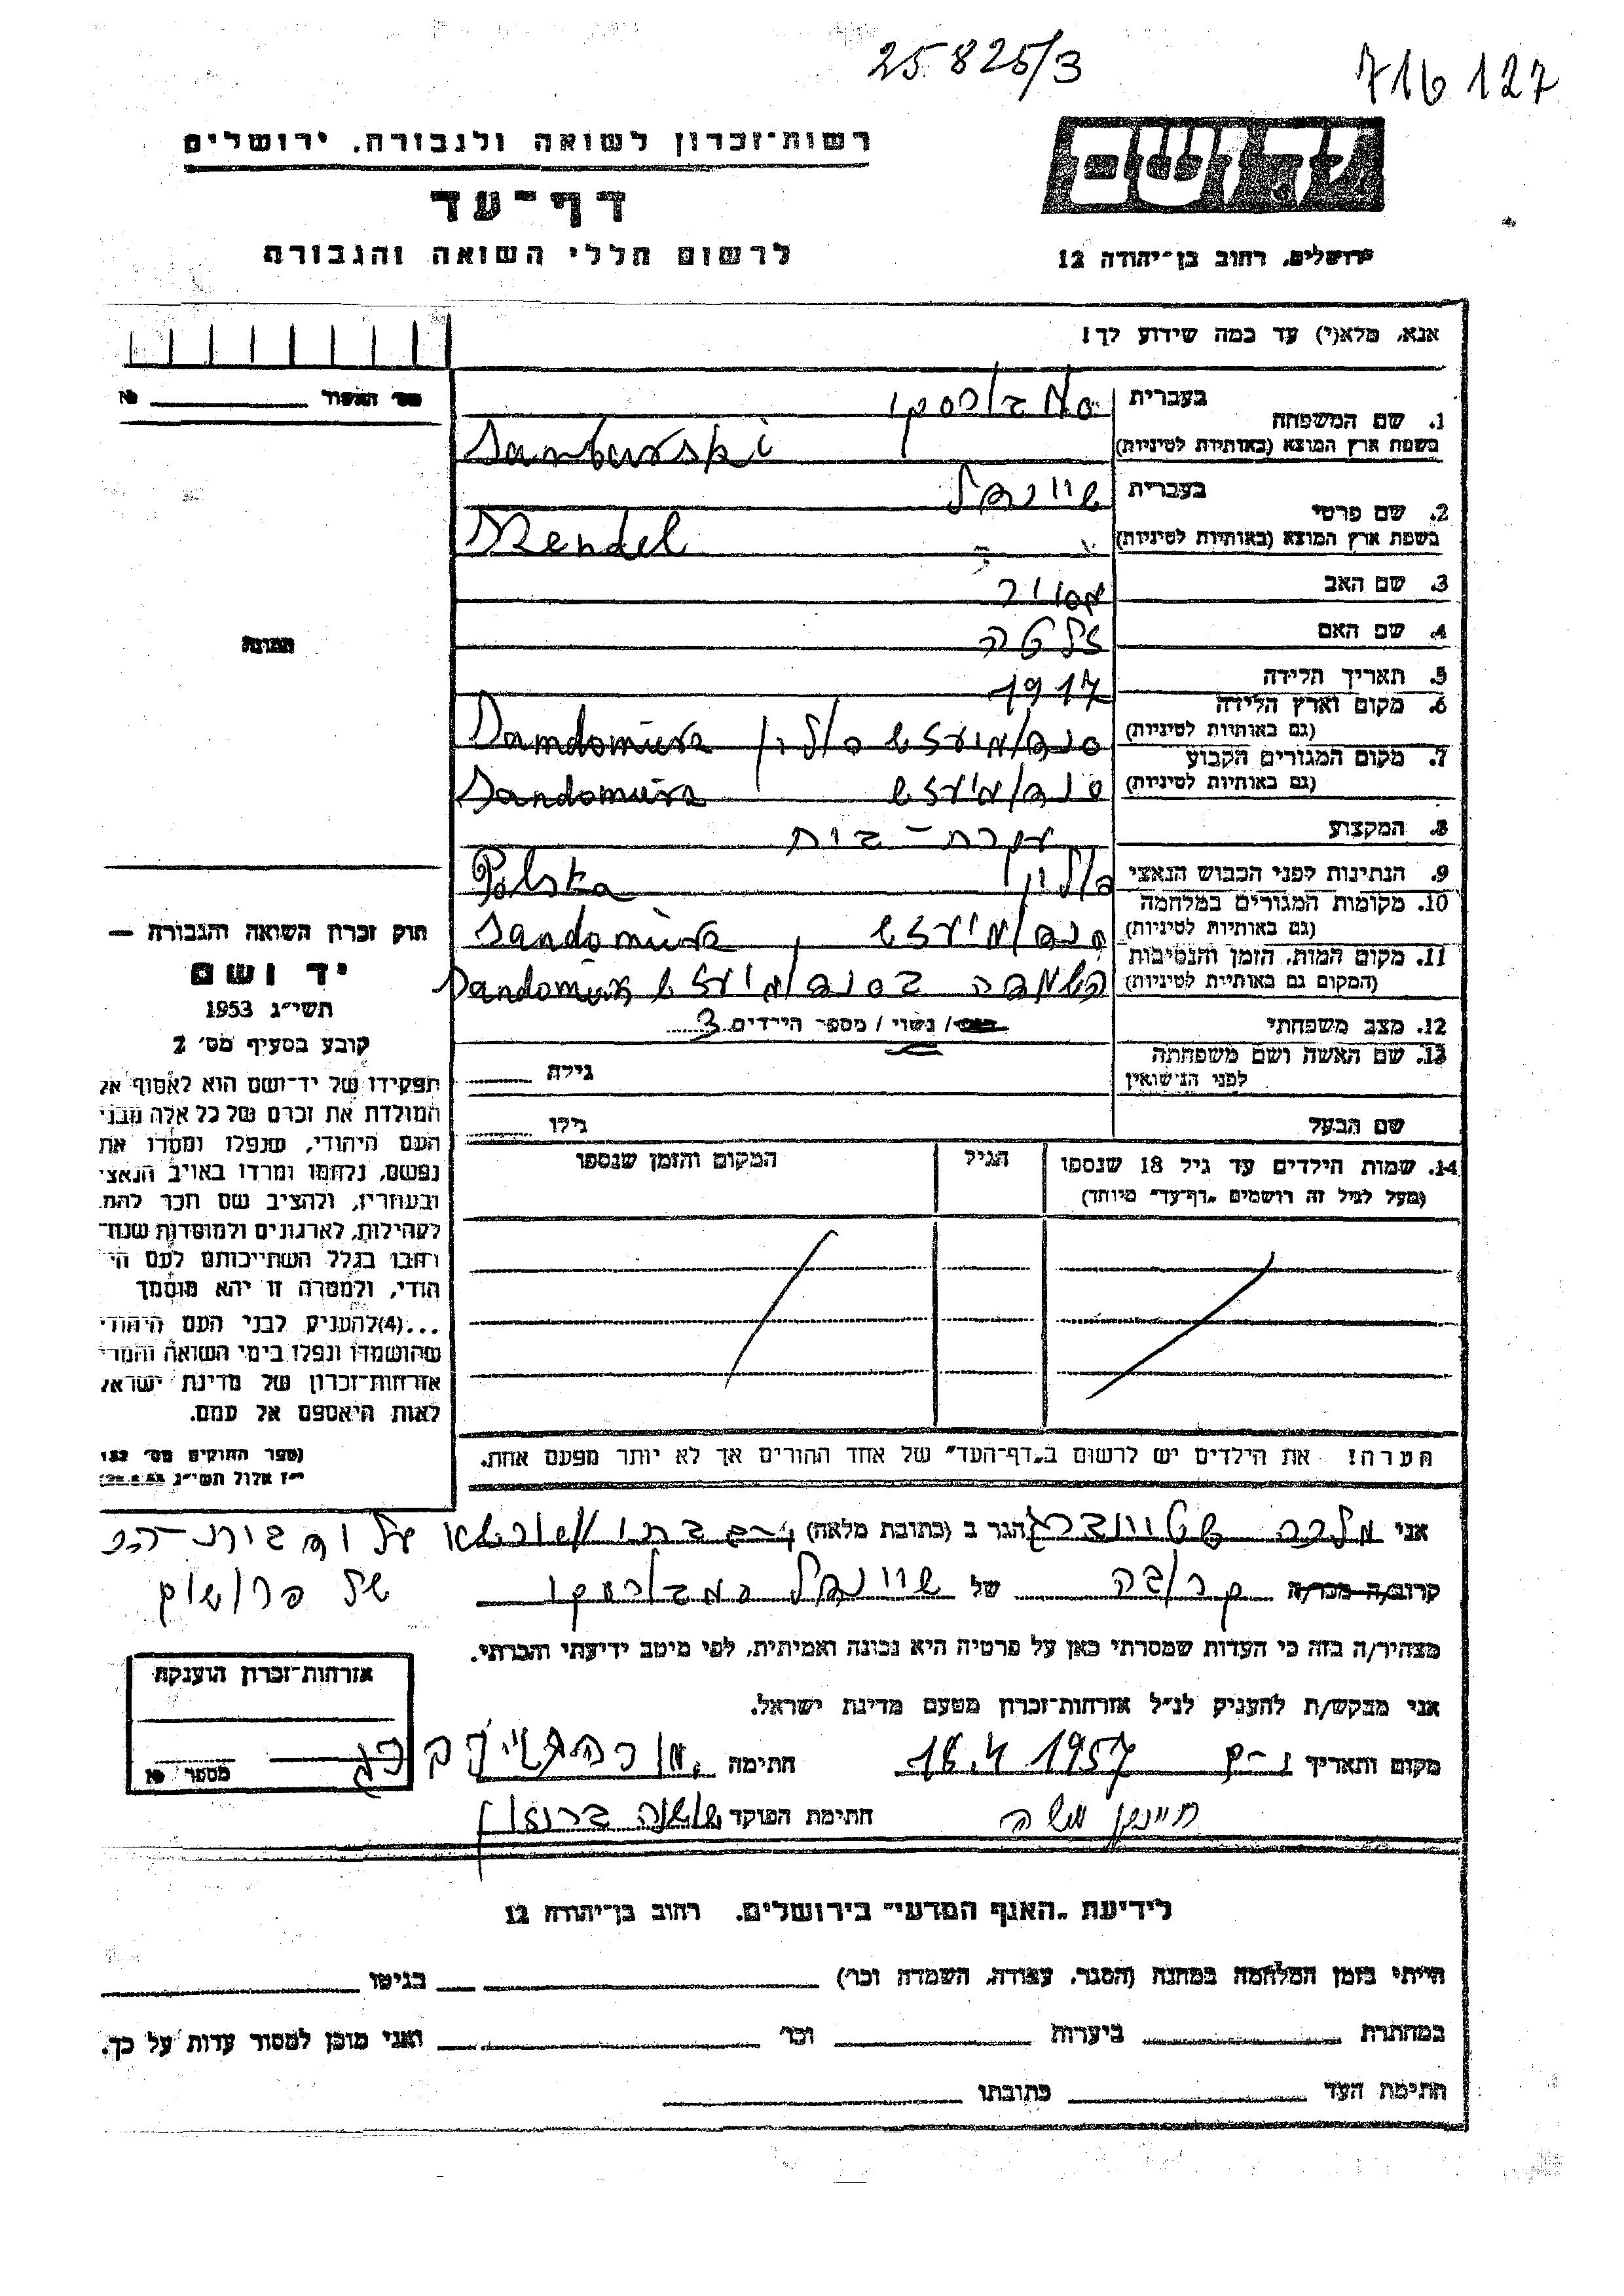 25.825/3
716127
רשות-זכרון לשואה ולגבורה, ירושלים
דף-עד
לרשום חללי השואה והגבורה
ירושלים, רחוב בן-יהודה 12
אנא, מלא(י) עד כמה שידוע לך!
מס' האשור №
1. שם המשפחה בעברית סמבורסקי
בשפת ארץ המוצא (באותיות לטיניות) Samburski
2. שם פרטי בעברית שיינדל
בשפת ארץ המוצא (באותיות לטיניות) Szendel
3. שם האב מאיר
4. שם האם זלטה
5. תאריך הלידה 1917
6. מקום וארץ הלידה (גם באותיות לטיניות) סנדומיעזש פולין Sandomierz
7. מקום המגורים הקבוע (גם באותיות לטיניות) סנדומיעזש Sandomierz
8. המקצוע עקרת-בית
9. הנתינות לפני הכבוש הנאצי פולין Polska
10. מקומות המגורים במלחמה (גם באותיות לטיניות) סנדומיעזש, Sandomierz
11. מקום המות, הזמן והנסיבות (המקום גם באותיות לטיניות) השמדה בסנדומיעזש Sandomierz
12. מצב משפחתי / נשוי / מספר הילדים 3
13. שם האשה ושם משפחתה לפני הנישואין גילה
שם הבעל גילו
14. שמות הילדים עד גיל 18 שנספו הגיל המקום והזמן שנספו
(מעל לגיל זה רושמים "דף-עד" מיוחד)
הערה! את הילדים יש לרשום ב"דף-העד" של אחד ההורים אך לא יותר מפעם אחת.
התמונה
חוק זכרון השואה והגבורה —
יד ושם
תשי"ג 1953
קובע בסעיף מס' 2
תפקידו של יד-ושם הוא לאסוף אל
המולדת את זכרם של כל אלה מבני
העם היהודי, שנפלו ומסרו את
נפשם, נלחמו ומרדו באויב הנאצי
ובעוזריו, ולהציב שם וזכר להם,
לקהילות, לארגונים ולמוסדות שנח-
רבו בגלל השתייכותם לעם הי
הודי, ולמטרה זו יהא מוסמך
...(4) להעניק לבני העם היהודי
שהושמדו ונפלו בימי השואה והמרי
אזרחות-זכרון של מדינת ישראל
לאות היאספם אל עמם.
(ספר החוקים מס' 132
י"ז אלול תשי"ג
אני מלכה הגר ב (כתובת מלאה)
קרוב/ה מכר/ה קרובה של שיינדל סמבורסקי
מצהיר/ה בזה כי העדות שמסרתי כאן על פרטיה היא נכונה ואמיתית, לפי מיטב ידיעתי והכרתי.
אני מבקש/ת להעניק לנ"ל אזרחות-זכרון מטעם מדינת ישראל.
מקום ותאריך 16.4 1957 חתימה
חתימת הפוקד
אזרחות-זכרון הוענקה
מספר №
לידיעת "האגף המדעי" בירושלים, רחוב בן-יהודה 12
הייתי בזמן המלחמה במחנה (הסגר, עבודה, השמדה וכר') בגיטו
במחתרת ביערות וכר' ואני מוכן למסור עדות על כך.
חתימת העד כתובתו